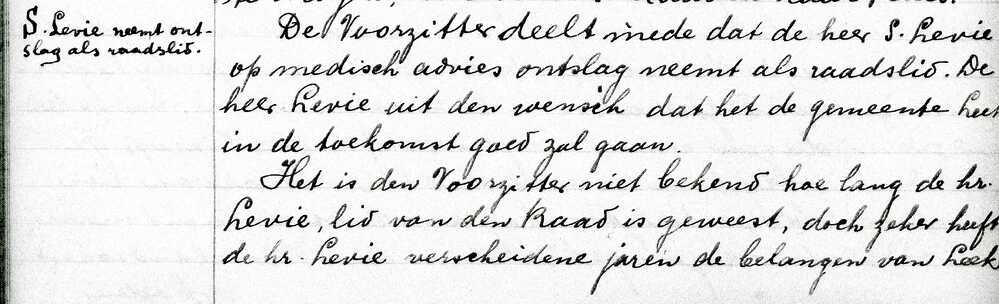 S. Levie neemt ont-
slag als raadslid.
De Voorzitter deelt mede dat de heer S. Levie
op medisch advies ontslag neemt als raadslid. De
heer Levie uit den wensch dat het de gemeente Leek
in de toekomst goed zal gaan.
Het is den Voorzitter niet bekend hoe lang de hr.
Levie, lid van den Raad is geweest, doch zeker heeft
de hr. Levie verscheidene jaren de belangen van Leek